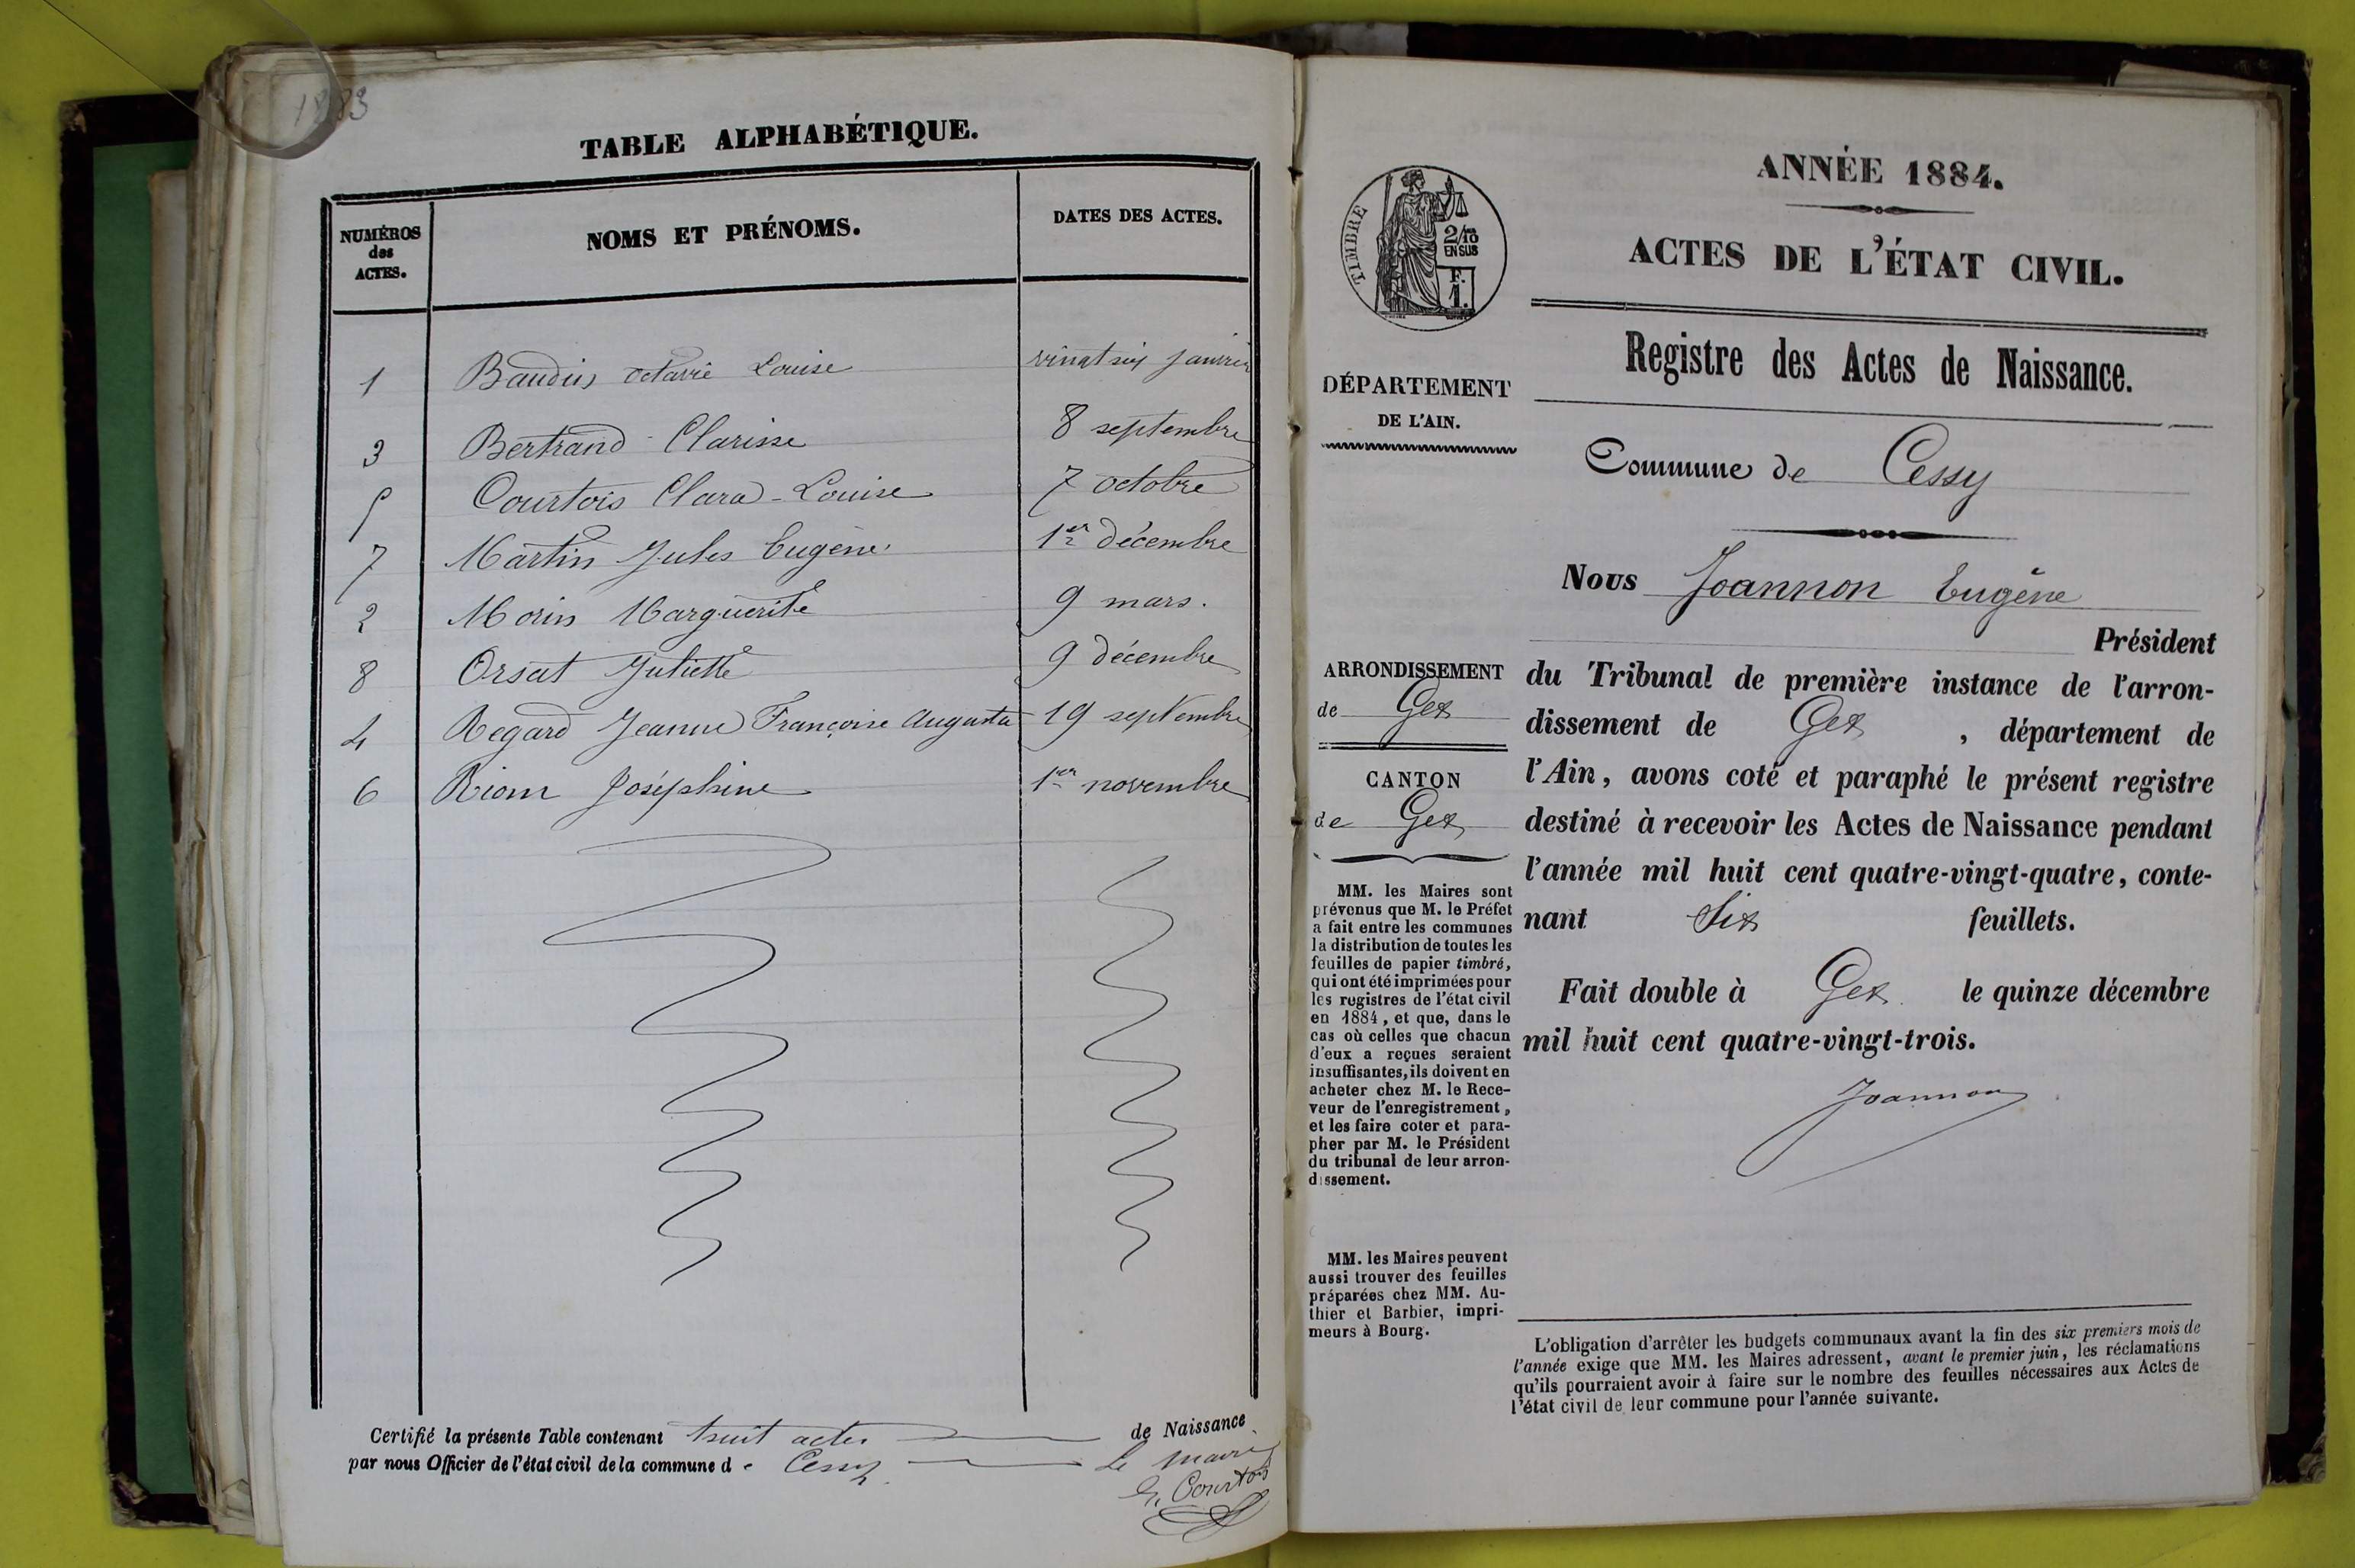 1883
TABLE ALPHABÉTIQUE.
NUMÉROS
des
ACTES.
NOMS ET PRÉNOMS.
DATES DES ACTES.
1 Baudin octavie Louise vingt six janvier
3 Bertrand Clarisse 8 septembre
5 Courtois Clara-Louise 7 octobre
7 Martin Jules Eugène 1er décembre
2 Morin Marguerite 9 mars.
8 Orsat Juliette 9 décembre
4 Regard Jeanne Françoise Augusta 19 septembre
6 Riom Joséphine 1er novembre
Certifié la présente Table contenant huit actes de Naissance
par nous Officier de l'état civil de la commune de Cessy
Le maire
Courtois
ANNÉE 1884.
ACTES DE L'ÉTAT CIVIL.
TIMBRE
2/10
EN SUS
F.
1.
DÉPARTEMENT
DE L'AIN.
ARRONDISSEMENT
de Gex
CANTON
de Gex
MM. les Maires sont
prévenus que M. le Préfet
a fait entre les communes
la distribution de toutes les
feuilles de papier timbré,
qui ont été imprimées pour
les registres de l'état civil
en 1884, et que, dans le
cas où celles que chacun
d'eux a reçues seraient
insuffisantes, ils doivent en
acheter chez M. le Rece-
veur de l'enregistrement,
et les faire coter et para-
pher par M. le Président
du tribunal de leur arron-
dissement.
MM. les Maires peuvent
aussi trouver des feuilles
préparées chez MM. Au-
thier et Barbier, impri-
meurs à Bourg.
Registre des Actes de Naissance.
Commune de Cessy
Nous Joannon Eugène
Président
du Tribunal de première instance de l'arron-
dissement de Gex, département de
l'Ain, avons coté et paraphé le présent registre
destiné à recevoir les Actes de Naissance pendant
l'année mil huit cent quatre-vingt-quatre, conte-
nant Six feuillets.
Fait double à Gex le quinze décembre
mil huit cent quatre-vingt-trois.
Joannon
L'obligation d'arrêter les budgets communaux avant la fin des six premiers mois de
l'année exige que MM. les Maires adressent, avant le premier juin, les réclamations
qu'ils pourraient avoir à faire sur le nombre des feuilles nécessaires aux Actes de
l'état civil de leur commune pour l'année suivante.